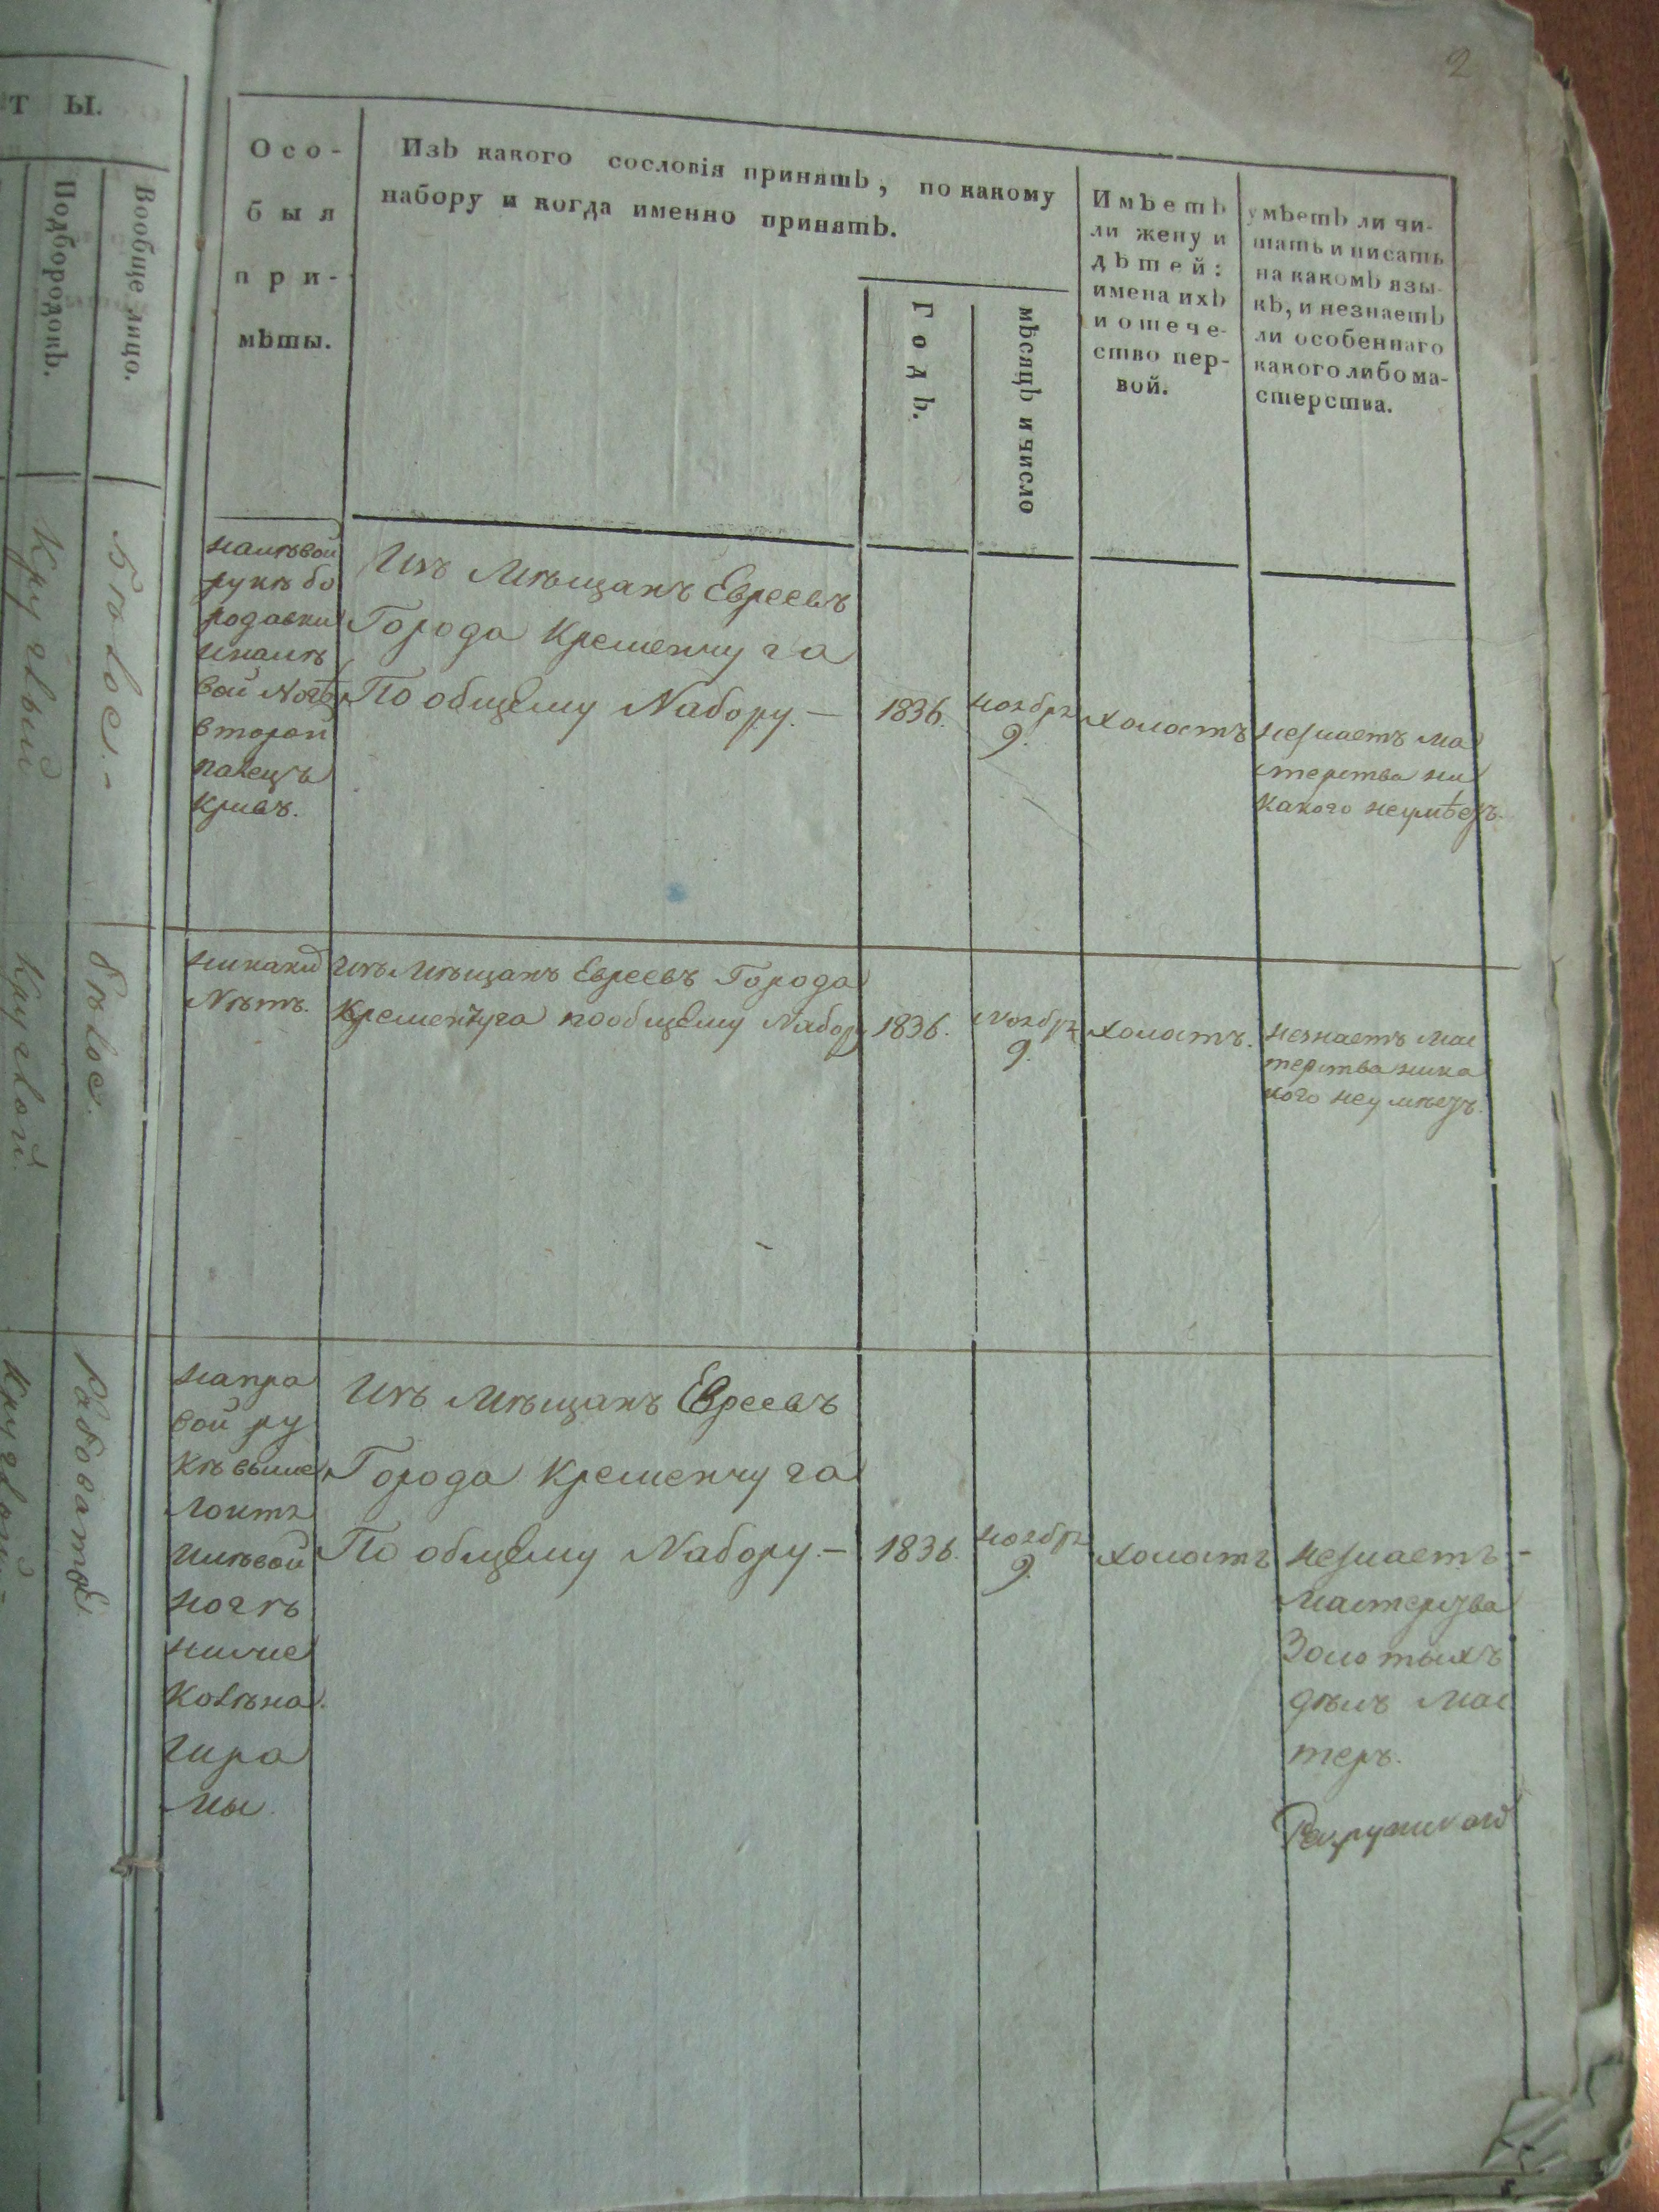 2
т ы.
Подбородокъ.
Вообще лицо.
Круглый
Бѣлое.-
Круглой.
бѣлое.
Рябоватое.
Осо-
быя
при-
мѣты.
Изъ какого сословія принятъ, по какому
набору и когда именно принятъ.
Годъ.
мѣсяцъ и число
Имѣетъ
ли жену и
дѣтей:
имена ихъ
и отече-
ство пер-
вой.
умѣетъ ли чи-
тать и писать
на какомъ язы-
кѣ, и незнаетъ
ли особеннаго
какого либо ма-
стерства.
налѣвой
рукѣ бо
родавки
иналѣ
вой Ногѣ
второй
палецъ
кривъ.
Изъ Мѣщанъ Евреевъ
Города Кременчуга
По общему Набору.—
1836.
ноября
9.
холостъ
незнаетъ ма
стерства ни
какого неумѣетъ.
никаки
Нѣтъ.
Изъ Мѣщанъ Евреевъ Города
Кременчуга пообщему Набору
1836.
Ноября
9.
холостъ.
незнаетъ мас
терства ника
кого неумѣетъ.
напра
вой ру
кѣ выше
локтя
илѣвой
ногѣ
ниже
колѣна.
шра
мы.
Изъ Мѣщанъ Евреевъ
Города Кременчуга
По общему Набору.—
1836.
ноября
9.
холостъ
незнаетъ-
мастерства
Золотыхъ
дѣлъ мас
теръ.